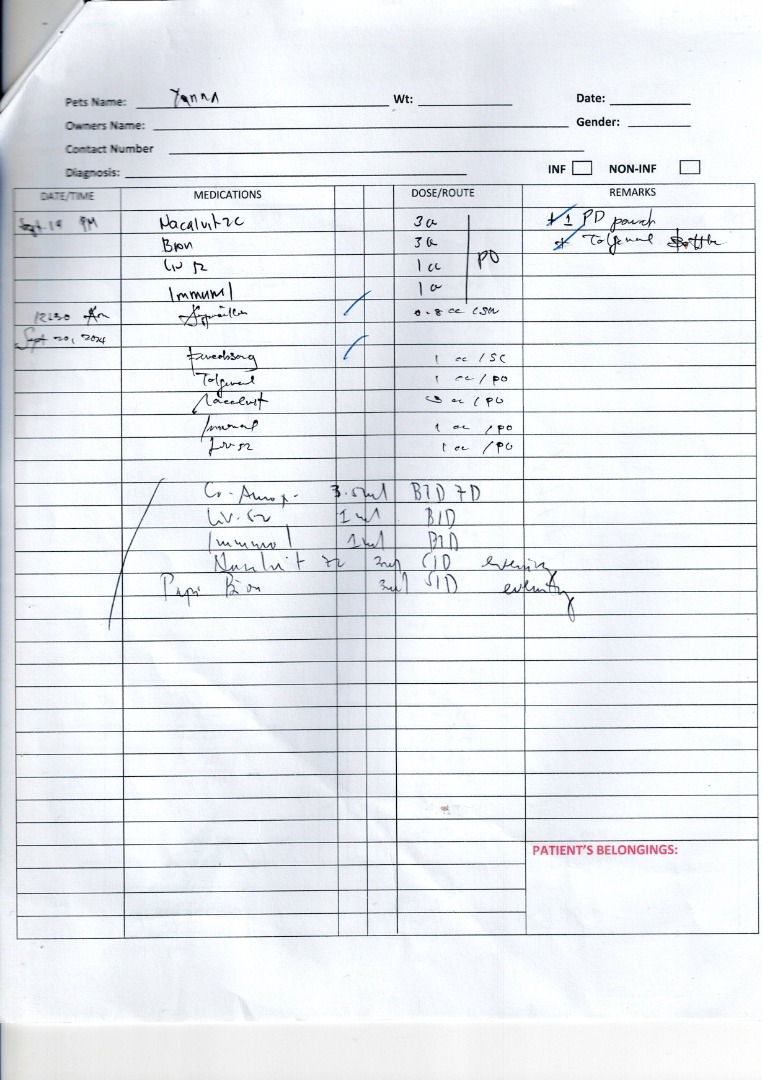 Pets Name: Yanna Wt: Date:
Owners Name: Gender:
Contact Number
Diagnosis: INF NON-INF
DATE/TIME MEDICATIONS DOSE/ROUTE REMARKS
Sept. 19 PM Nacalvit-2C 3 cc + 1 PD pouch
Bion 3 cc
Liv 52 1 cc PO
Immunol 1 cc
12:30 Am 0.8 cc
Sept 20, 2024
1 cc / SC
1 cc / PO
Nacalvit cc / PO
Immunol 1 cc / PO
Liv 52 1 cc / PO
Co-Amox. 3.5ml BID 7D
Liv. 52 1 ml BID
Immunol 1 ml BID
Nacalvit 2c 3ml SID evening
Papi Bion 3ml SID evening
PATIENT'S BELONGINGS: